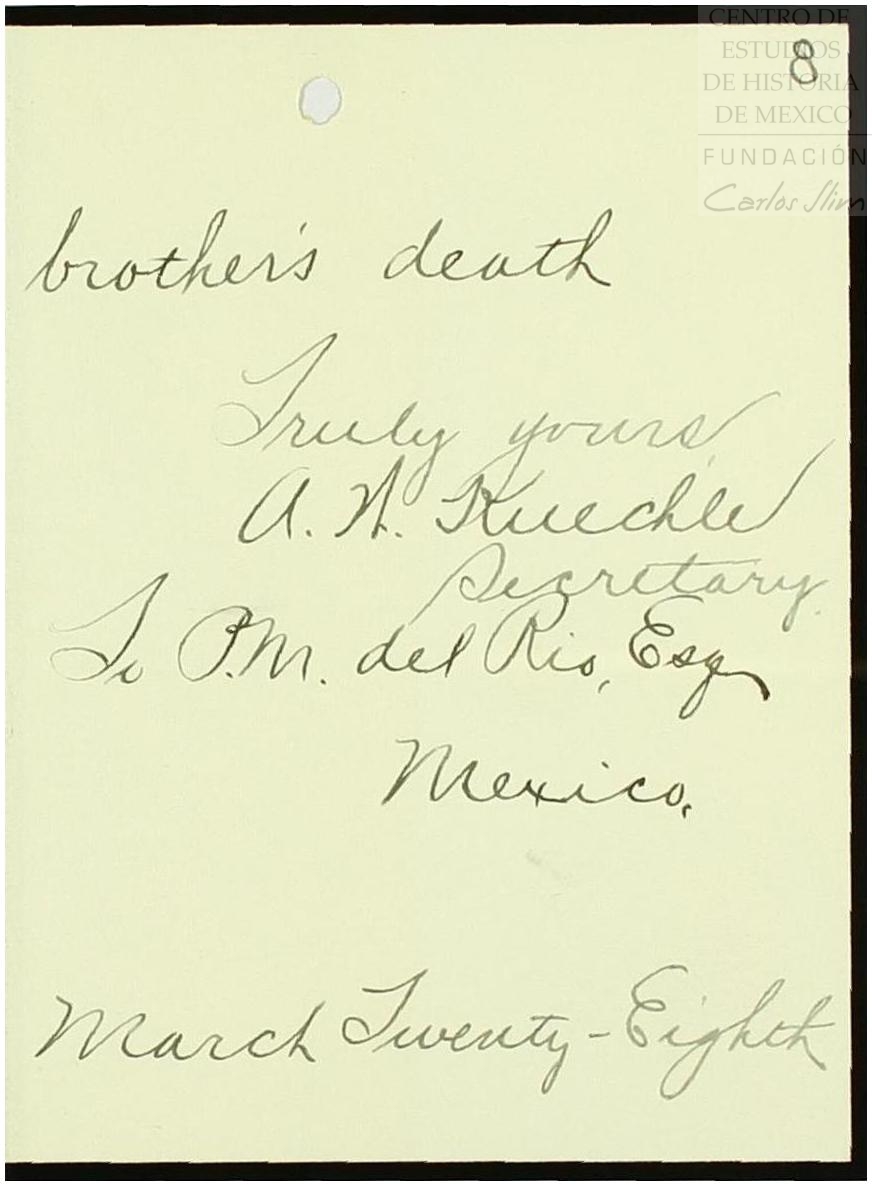 CENTRO DE
ESTUDIOS
DE HISTORIA
DE MEXICO
FUNDACIÓN
Carlos Slim
8
brother's death
Truly yours,
A. W. Kuechle
Secretary.
To P.M. del Rio, Esq
Mexico.
March Twenty-Eighth